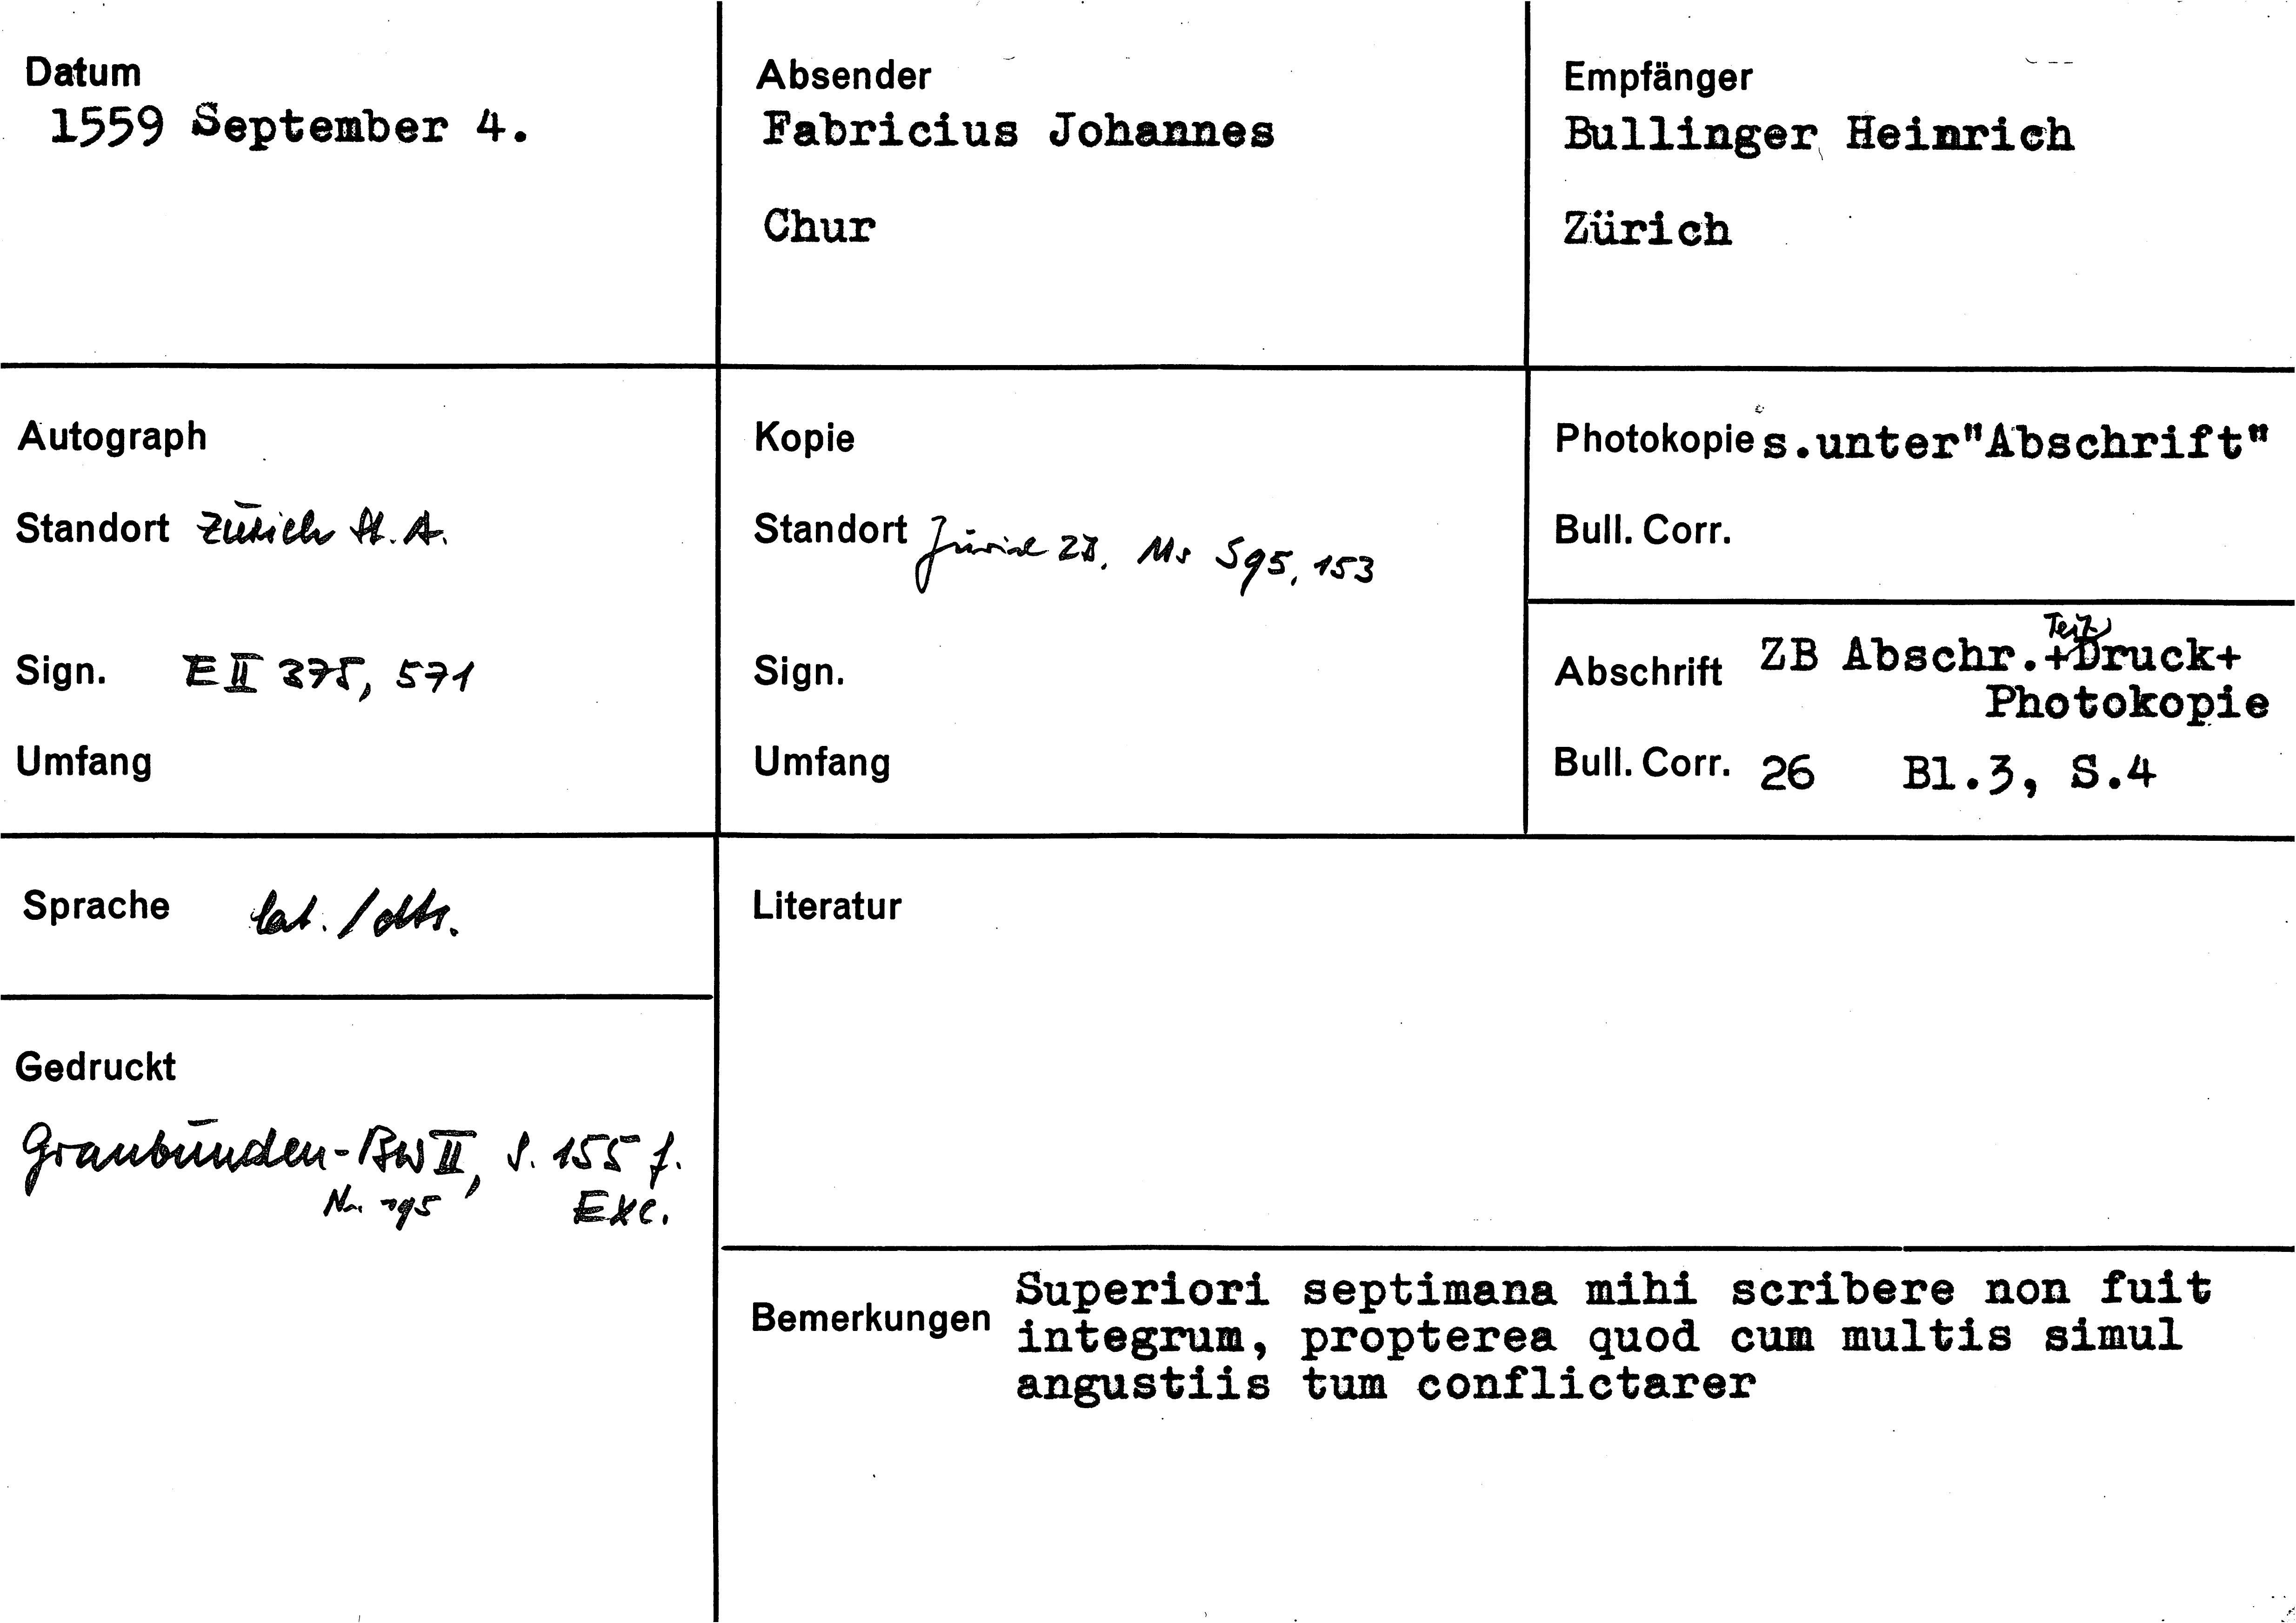 Datum
1559 September 4.
Absender
Fabricius Johannes
Chur
Empfänger
Bullinger Heinrich
Zürich
Autograph
Standort Zürich St. A.
Sign. E II 375, 571
Umfang
Kopie
Standort Zürich ZB, Ms S 95, 153
Sign.
Umfang
Photokopie s.unter"Abschrift"
Bull. Corr.
Abschrift ZB Abschr.+Druck+
Photokopie
Bull. Corr. 26 Bl.3, S.4
Sprache lat. / dts.
Literatur
Gedruckt
Graubünden-BW II, S. 155 f.
Nr. 195 Exc.
Bemerkungen Superiori septimana mihi scribere non fuit
integrum, propterea quod cum multis simul
angustiis tum conflictarer